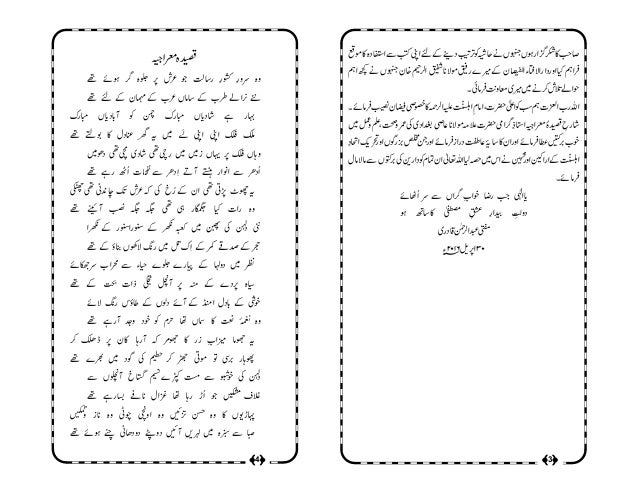 صاحب کا شکر گزار ہوں جنہوں نے حاشیہ کو ترتیب دینے کے لئے اپنی کتب سے استفادہ کا موقع
فراہم کیا اور دارالافتاء الفیضان کے میرے رفیق مولانا شفیق الرحیم خان جنہوں نے کچھ اہم
حوالے تلاش کرنے میں میری معاونت فرمائی۔
اللہ رب العزت ہم سب کو اعلیٰ حضرت، امام اہلسنت علیہ الرحمہ کا خصوصی فیضان نصیب فرمائے۔
شارح قصیدۂ معراجیہ استاذِ گرامی حضرت علامہ مولانا عاصی بغدادی کی عمر وصحت، علم و عمل میں
خوب برکتیں عطا فرمائے اور ان کا سایۂ عاطفت دراز فرمائے اور جن مخلص بزرگوں اور تحریک اتحاد
اہلسنّت کے اراکین اور محبین نے اس میں حصہ لیا اللہ تعالیٰ ان تمام کو دارین کی برکتوں سے مالامال
فرمائے۔
یا الٰہی جب رضا خواب گراں سے سر اُٹھائے
دولتِ بیدار عشقِ مصطفیٰ کا ساتھ ہو
مفتی عبدالرحمٰن قادری
۳۰ اپریل ۲۰۱۶ء
3
قصیدہ معراجیہ
وہ سرور کشور رسالت جو عرش پر جلوہ گر ہوئے تھے
نئے نرالے طرب کے ساماں عرب کے مہمان کے لئے تھے
بہار ہے شادیاں مبارک چمن کو آبادیاں مبارک
ملک فلک اپنی اپنی لے میں یہ گھر عنادل کا بولتے تھے
وہاں فلک پر یہاں زمیں میں رچی تھی شادی مچی تھی دھومیں
اُدھر سے انوار ہنستے آتے اِدھر سے نفحات اُٹھ رہے تھے
یہ چھوٹ پڑتی تھی ان کے رُخ کی کہ عرش تک چاندنی تھی چھٹکی
وہ رات کیا جگمگا رہی تھی جگہ جگہ نصب آئینے تھے
نئی دُلہن کی پھبن میں کعبہ نکھر کے سنورا سنور کے نکھرا
حجر کے صدقے کمر کے اِک تل میں رنگ لاکھوں بناؤ کے تھے
نظر میں دولہا کے پیارے جلوے حیاء سے محراب سر جھکائے
سیاہ پردے کے منہ پر آنچل تجلّی ذات بحت کے تھے
خوشی کے بادل امنڈ کے آئے دلوں کے طاؤس رنگ لائے
وہ نغمۂ نعت کا سماں تھا حرم کو خود وجد آ رہے تھے
یہ جھوما میزاب زر کا جھومر کہ آ رہا کان پر ڈھلک کر
پھوہار برسی تو موتی جھڑ کر حطیم کی گود میں بھرے تھے
دُلہن کی خوشبو سے مست کپڑے نسیم گستاخ آنچلوں سے
غلاف مشکیں جو اُڑ رہا تھا غزال نافے بسا رہے تھے
پہاڑیوں کا وہ حسن تزئیں وہ اونچی چوٹی وہ ناز و تمکیں
صبا سے سبزہ میں لہریں آئیں دوپٹے دھانی چنے ہوئے تھے
4